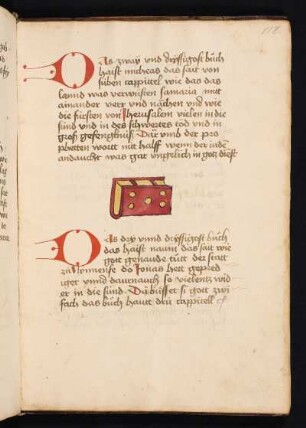 118.
Das zway und dryssigost buͤch
haist micheas das sait von
suben cappittel wie das das
lannd was verwiisten samaria mit
ainander verr und nächen und wie
die fürsten von Jherusalem vielen in die
sünd und in des schwertes tod und in
groß gefengknuß Dar umb der pro
phetten wortt nit halff wenn der iude
andaucht was gar ungelich in gott dienst
Das dry unnd dryssigost buͤch
das haist naum das sait wie
gott genaude tuͤtt der statt
zu Nynneue do Jonas hett gepred
iget unnd darnauch so vielentz wid
er in die sünd Da buͤsset si gott zwi
fach das buͤch hautt drü cappittel